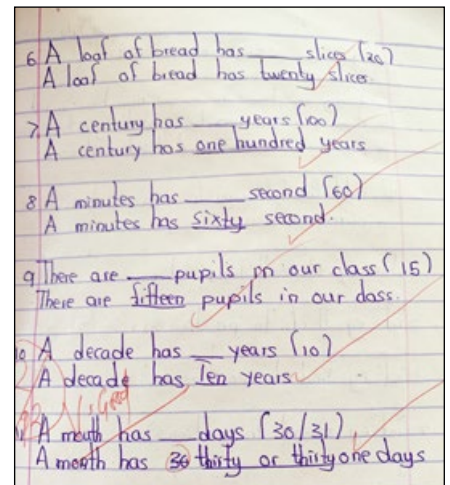 6 A loaf of bread has ___ slices (20)
A loaf of bread has twenty slices.
7. A century has ___ years (100)
A century has one hundred years
8 A minutes has ___ second (60)
A minutes has sixty second.
9 There are ___ pupils in our class (15)
There are fifteen pupils in our class.
10 A decade has ___ years (10)
A decade has Ten years
Good
11 A month has ___ days (30/31)
A month has 30 thirty or thirty one days